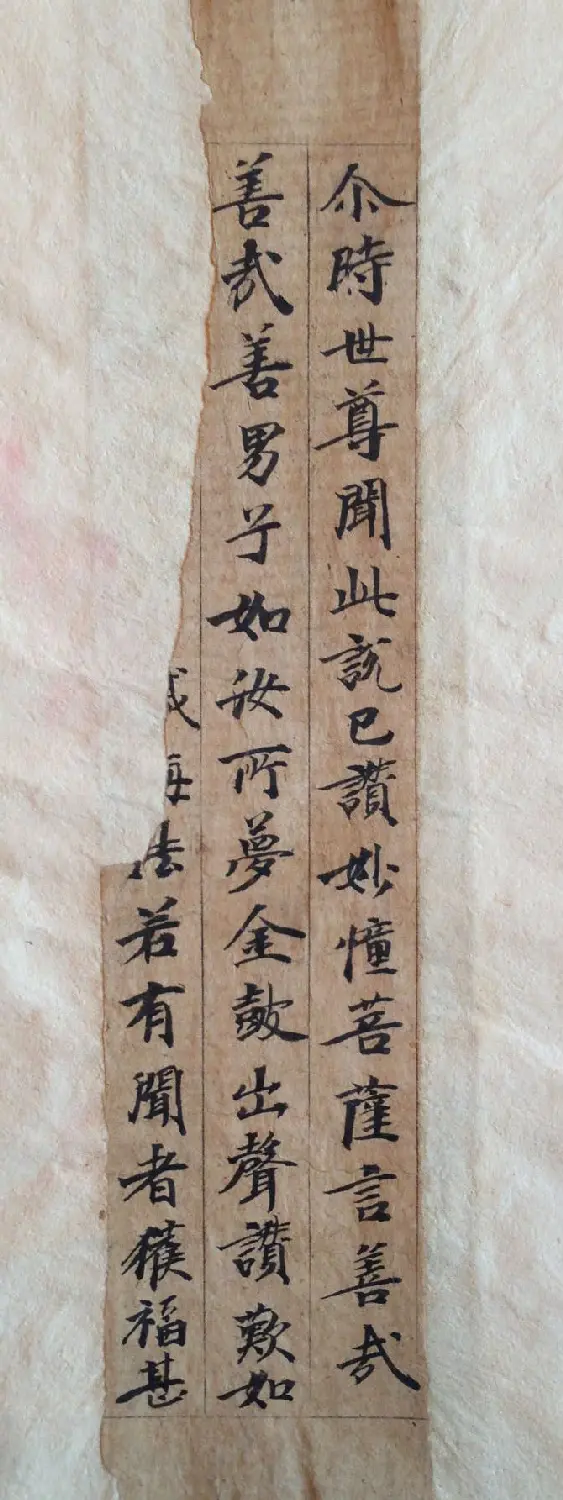 尒時世尊聞此說已讚妙憧菩薩言善哉
善哉善男子如汝所夢金皷出聲讚歎如
法若有聞者獲福甚